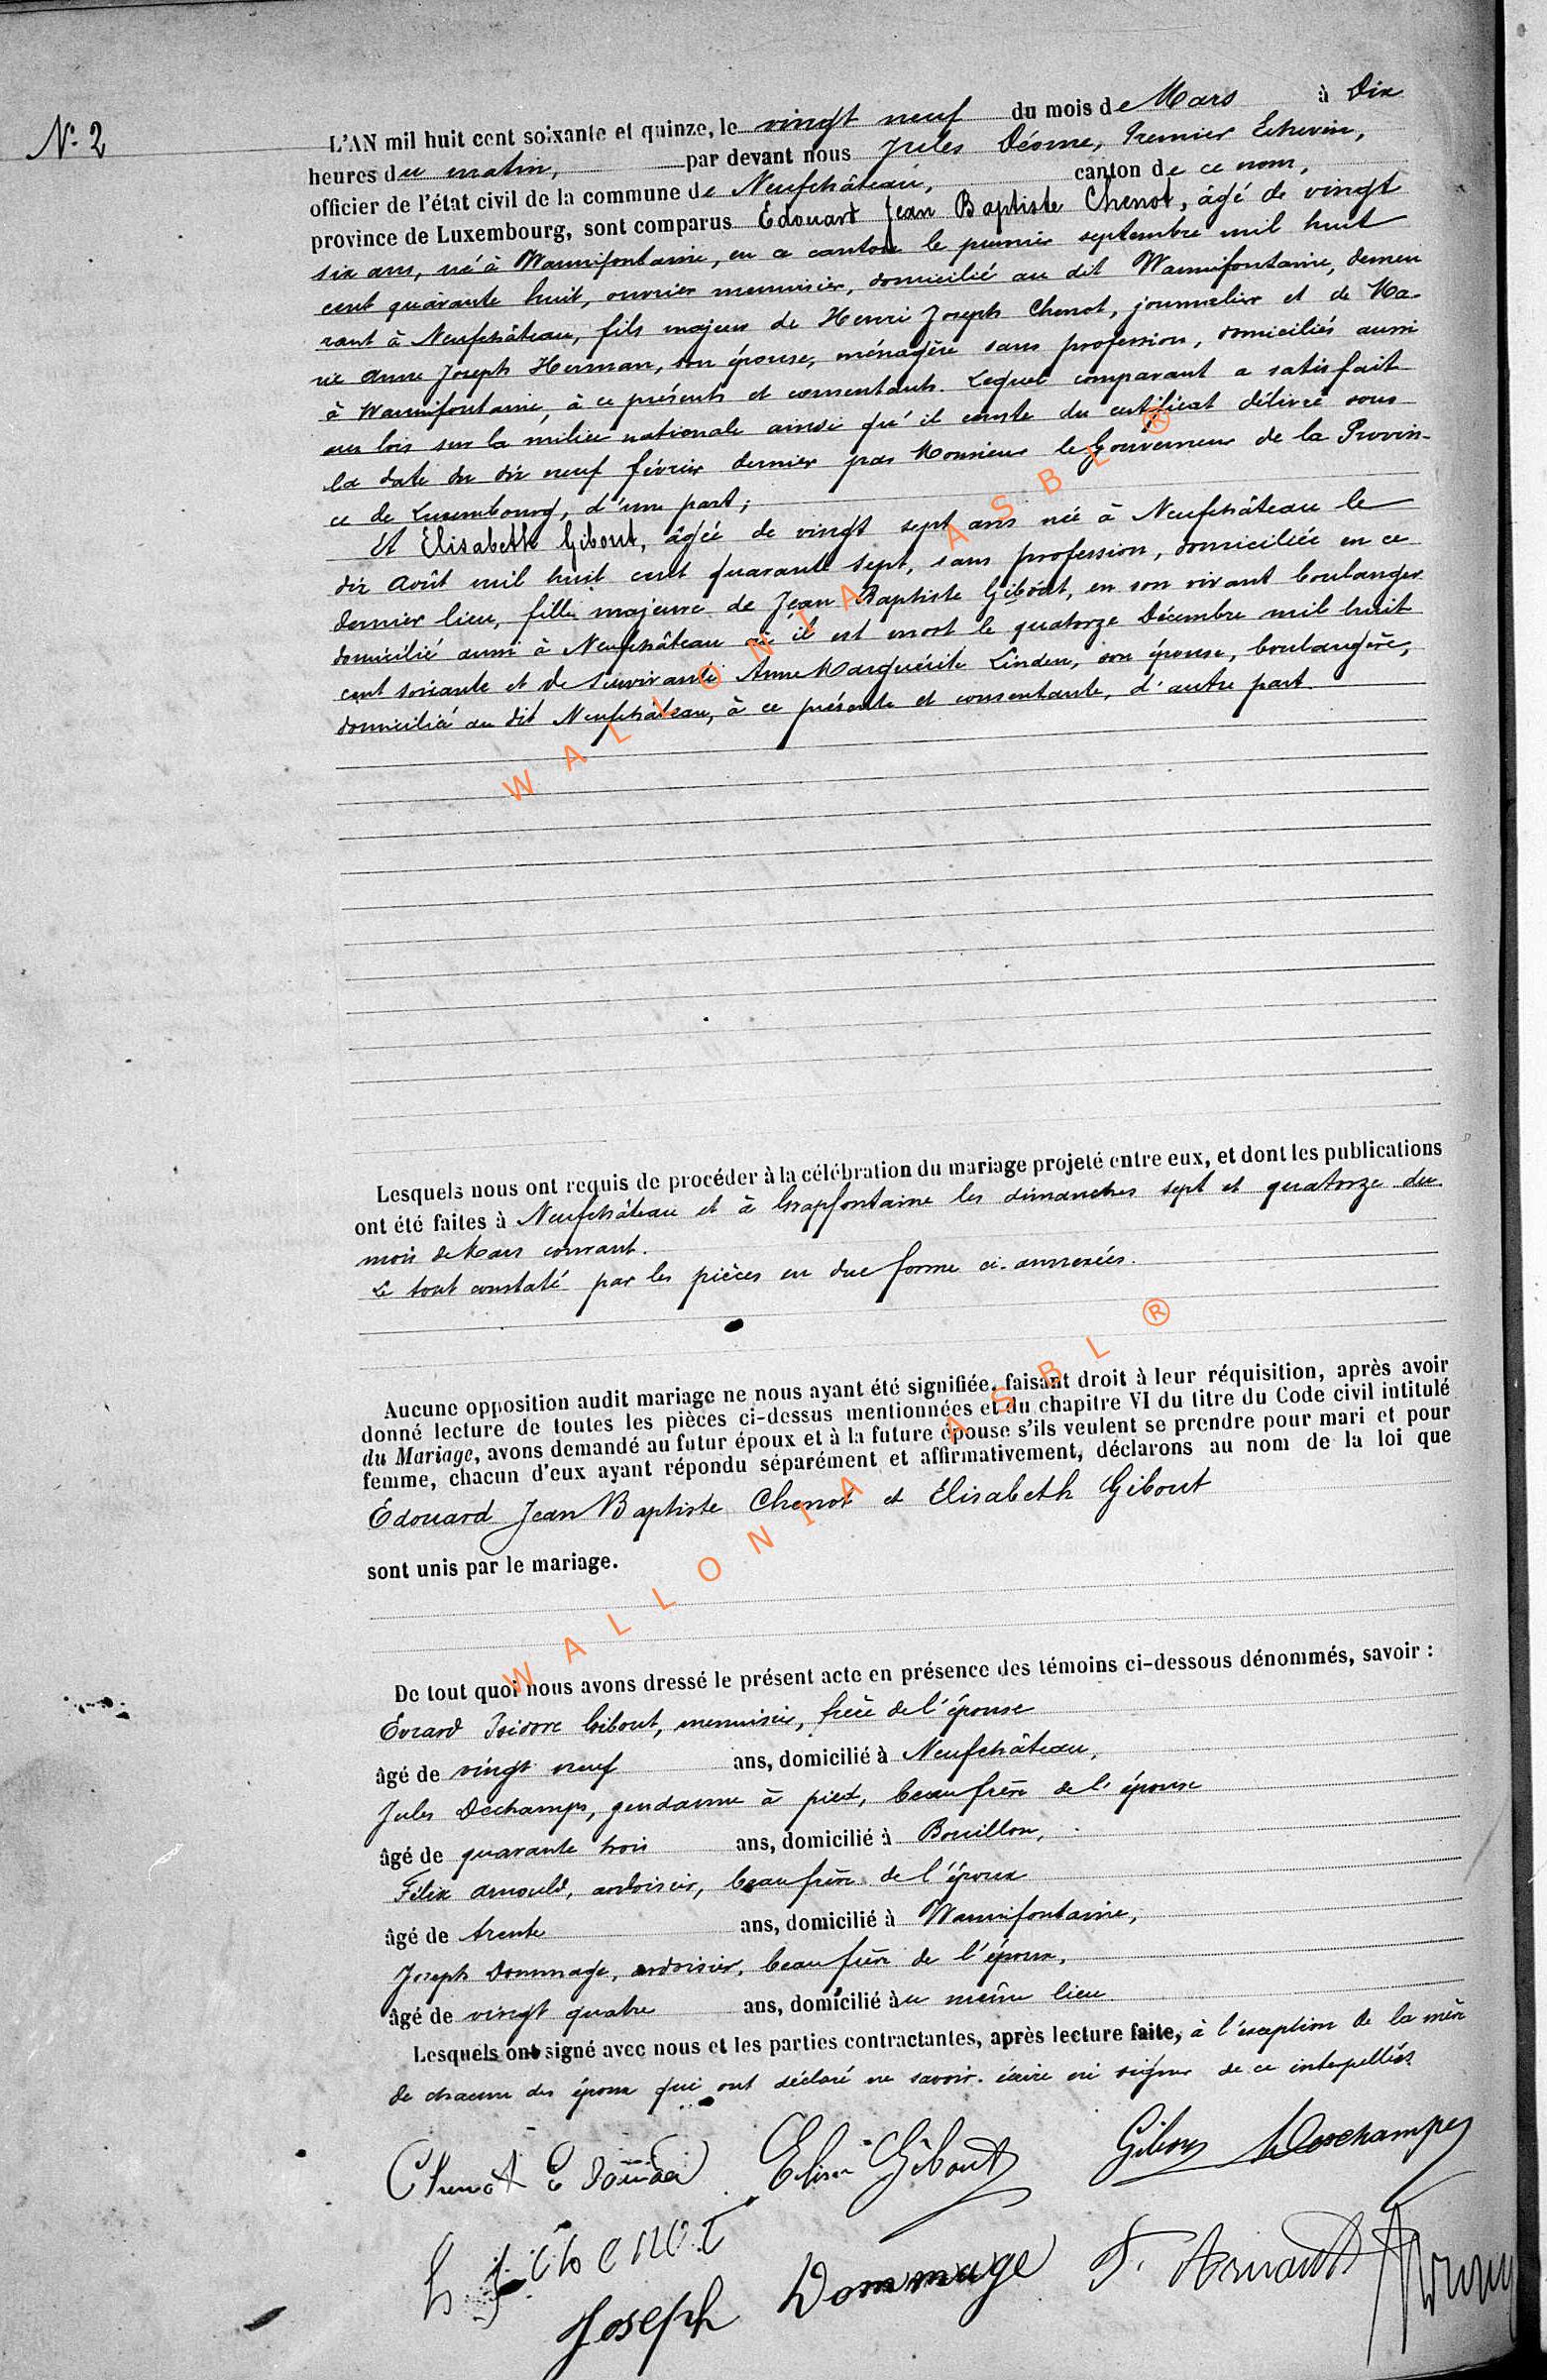 N° 2
L'AN mil huit cent soixante et quinze, le vingt neuf du mois de Mars à Dix
heures du matin, par devant nous Jules Déome, Premier Echevin,
officier de l'état civil de la commune de Neufchâteau, canton de ce nom,
province de Luxembourg, sont comparus Edouard Jean Baptiste Chenot, âgé de vingt
six ans, né à Warmifontaine, en ce canton le premier septembre mil huit
cent quarante huit, ouvrier menuisier, domicilié au dit Warmifontaine, demeu
rant à Neufchâteau, fils majeur de Henri Joseph Chenot, journalier et de Ma-
rie Anne Joseph Herman, son épouse, ménagère sans profession, domiciliés aussi
à Warmifontaine, à ce présents et consentants. Lequel comparant a satisfait
aux lois sur la milice nationale ainsi qu'il conste du certificat délivré sous
la date du dix neuf février dernier par Monsieur le Gouverneur de la Provin-
ce de Luxembourg, d'une part;
Et Elisabeth Gibout, âgée de vingt sept ans née à Neufchâteau le
dix Août mil huit cent quarante sept, sans profession, domiciliée en ce
dernier lieu, fille majeure de Jean Baptiste Gibout, en son vivant boulanger
domicilié aussi à Neufchâteau où il est mort le quatorze Décembre mil huit
cent soixante et de survivante Anne Marguérite Linden, son épouse, boulangère,
domiciliée au dit Neufchâteau, à ce présente et consentante, d'autre part.
Lesquels nous ont requis de procéder à la célébration du mariage projeté entre eux, et dont les publications
ont été faites à Neufchâteau et à Grapfontaine les dimanches sept et quatorze du
mois de Mars courant.
Le tout constaté par les pièces en due forme ci-annexées.
Aucune opposition audit mariage ne nous ayant été signifiée, faisant droit à leur réquisition, après avoir
donné lecture de toutes les pièces ci-dessus mentionnées et du chapitre VI du titre du Code civil intitulé
du Mariage, avons demandé au futur époux et à la future épouse s'ils veulent se prendre pour mari et pour
femme, chacun d'eux ayant répondu séparément et affirmativement, déclarons au nom de la loi que
Edouard Jean Baptiste Chenot et Elisabeth Gibout
sont unis par le mariage.
De tout quoi nous avons dressé le présent acte en présence des témoins ci-dessous dénommés, savoir :
Evrard Isidore Gibout, menuisier, frère de l'épouse
âgé de vingt neuf ans, domicilié à Neufchâteau,
Jules Dechamps, gendarme à pied, beau frère de l'épouse
âgé de quarante trois ans, domicilié à Bouillon,
Félix Arnould, ardoisier, beau frère de l'époux
âgé de trente ans, domicilié à Warmifontaine,
Joseph Dommage, ardoisier, beau frère de l'époux,
âgé de vingt quatre ans, domicilié au même lieu
Lesquels ont signé avec nous et les parties contractantes, après lecture faite, à l'exception de la mère
de chacun des époux qui ont déclaré ne savoir écrire ni signer de ce interpellées
Chenot Edouard Elisa Gibout Gibout Deschamps
h. j. chenot
Joseph Dommage F. Arnould
WALLONIA ASBL ®
WALLONIA ASBL ®